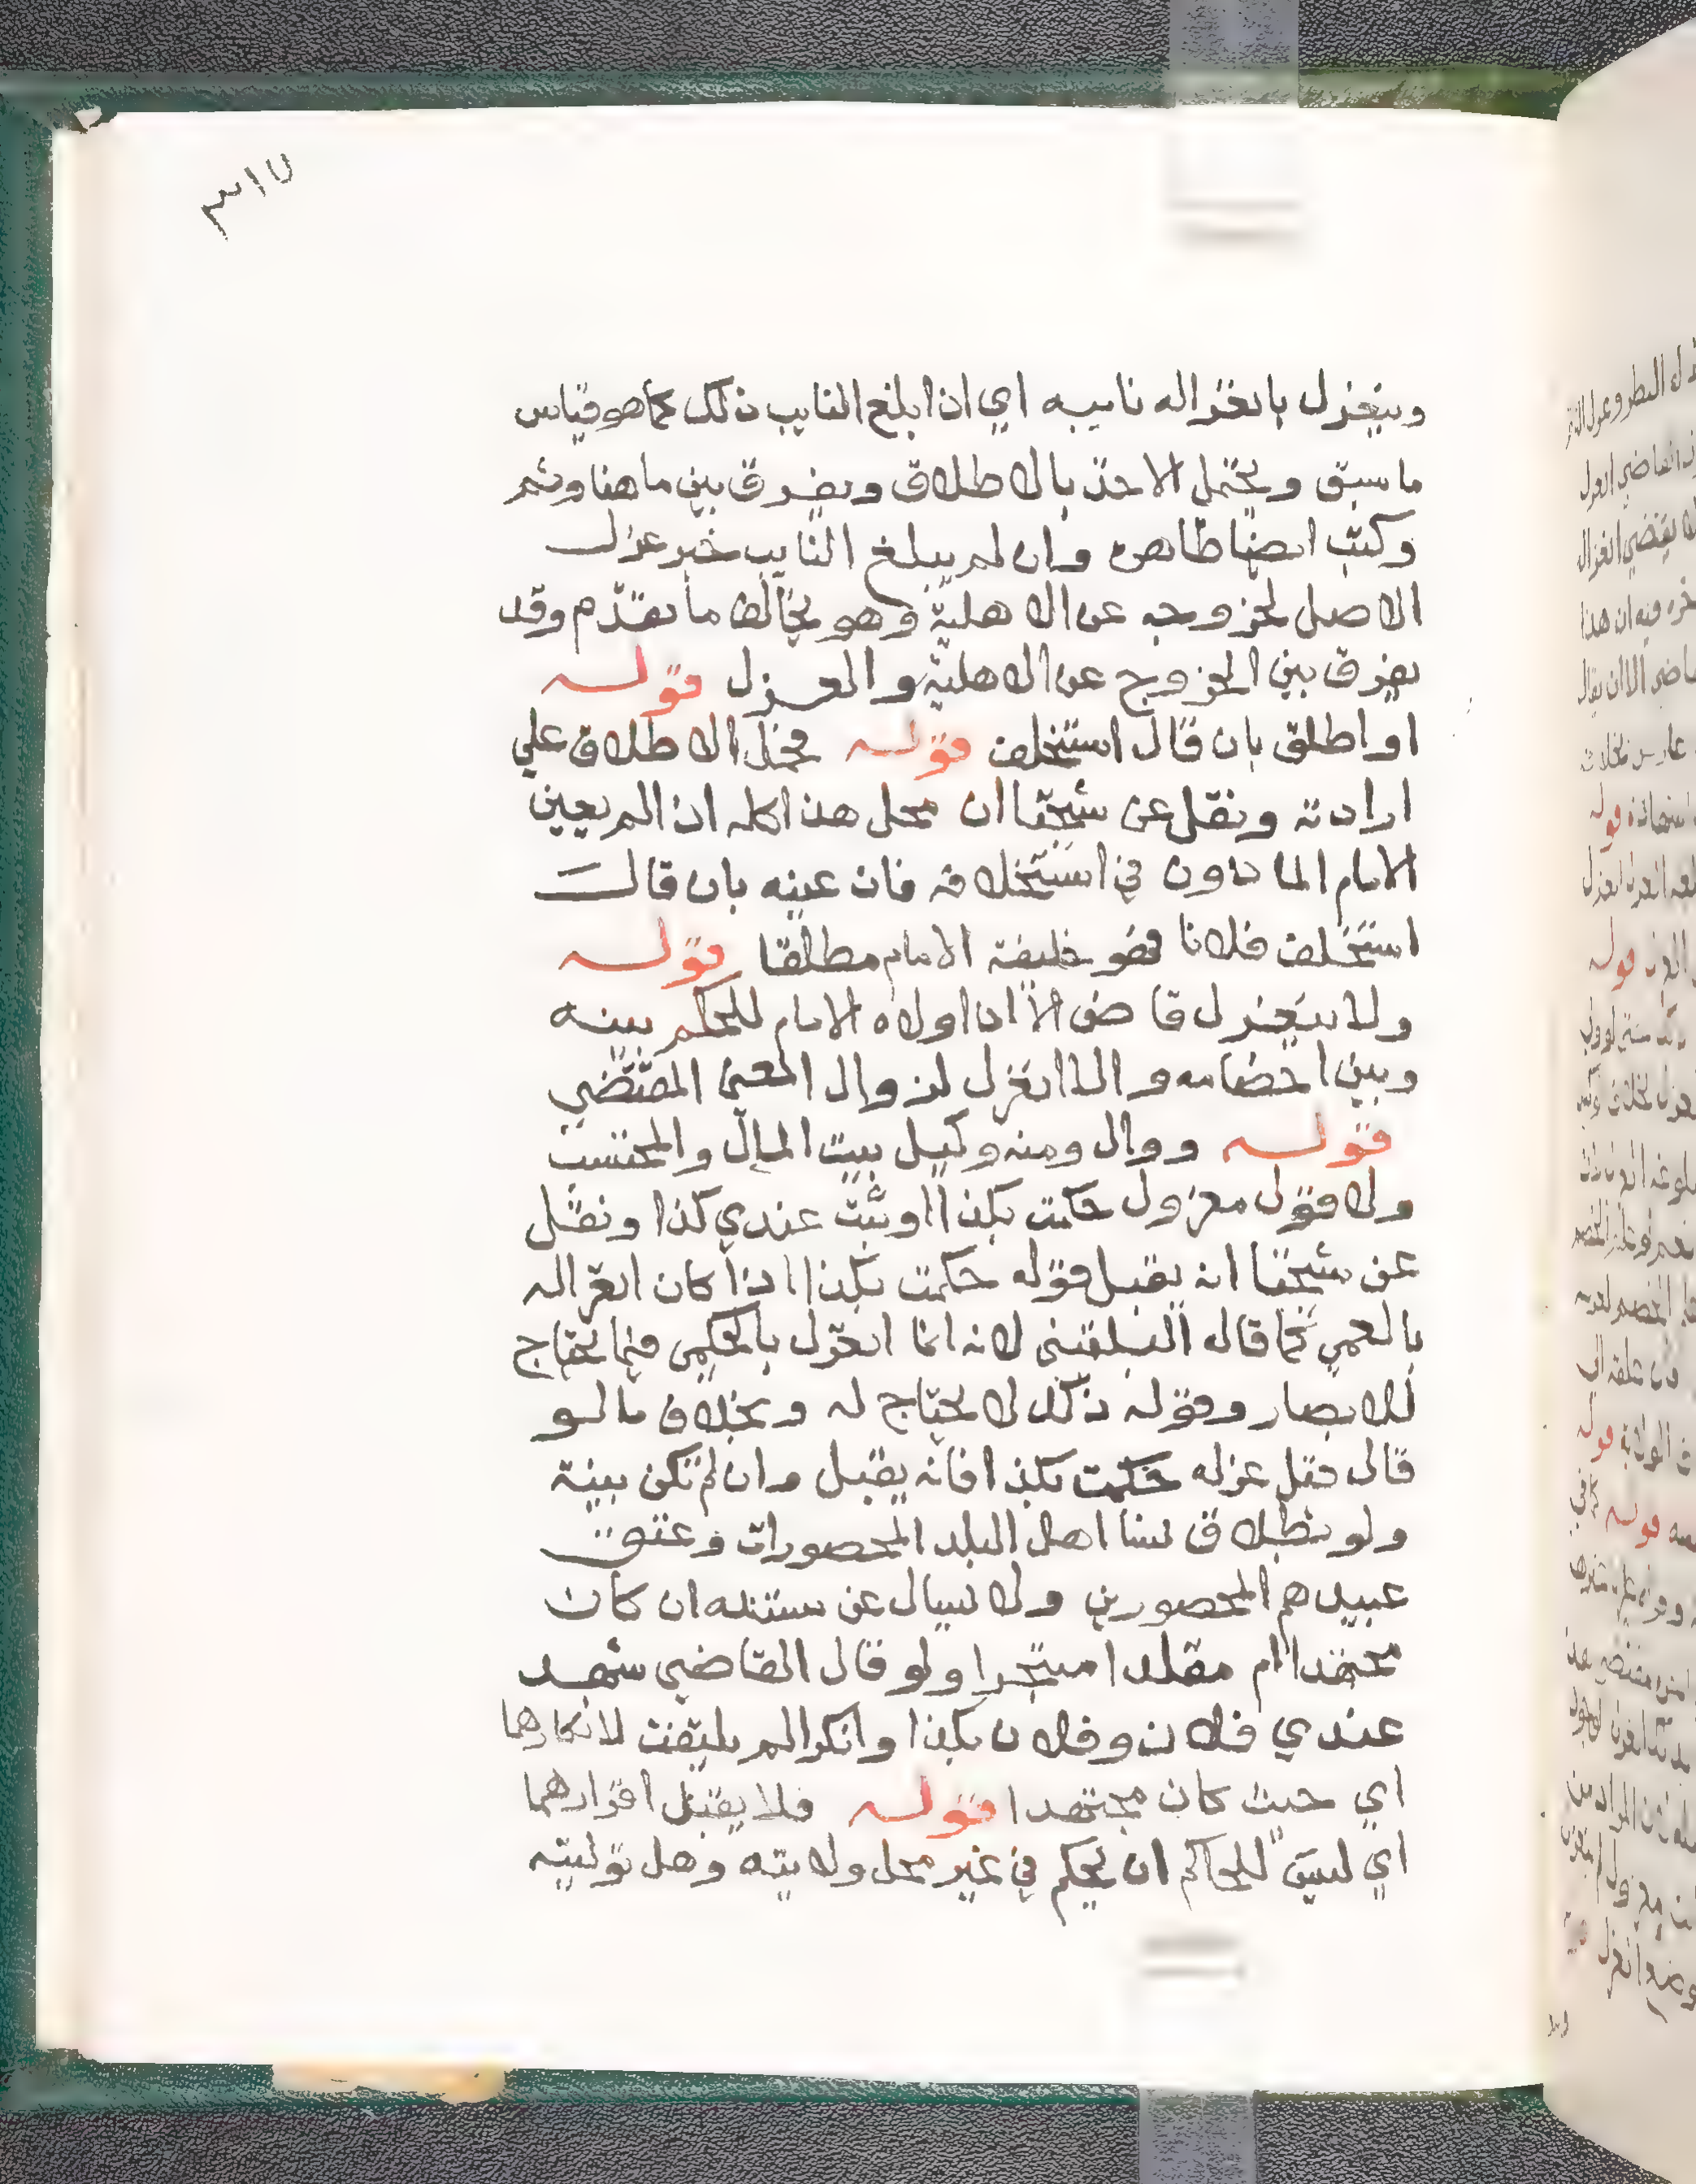 ٣١٧
وينعزل بانعزاله نايبه اي ان ابلغ النايب ذلك كما هو قياس
ما سبق ويحتمل الاخذ بالاطلاق ويفرق بين ما هنا وثم
وكتب ايضا ظاهره وان لم يبلغ النايب خبر عزل
الاصل لخروجه عن الاهلية وهو يخالف ما تقدم وقد
يفرق بين الخروج عن الاهلية والعزل قوله
او اطلق بان قال استخلف قوله محمل الاطلاق علي
ارادته ونقل عن شيخنا ان محل هذا كله اذا لم يعين
الامام الماذون في استخلافه فان عينه بان قال
استخلف فلانا فهو خليفة الامام مطلقا قوله
ولا ينعزل قاض الا ان اولاه الامام للحكم بينه
وبين اخصامه والا انعزل لزوال المعنى المقتضي
قوله ووال ومنه وكيل بيت المال والمحتسب
ولا قول معزول حكمت بكذا او ثبت عندي كذا ونقل
عن شيخنا انه يقبل قوله حكمت بكذا اذا كان انعزاله
بالعمي كما قال البلقيني لانه انما انعزل بالحكم فيما يحتاج
للابصار وقوله ذلك لا يحتاج له وبخلاف ما لو
قال قبل عزله حكمت بكذا فانه يقبل وان لم تكن بينة
ولو بطلاق نسا اهل البلد المحصورات وعتق
عبيدهم المحصورين ولا يسال عن مستنده ان كان
مجتهدا ام مقلدا متبحرا ولو قال القاضي شهد
عندي فلان وفلان بكذا وانكرا لم يلتفت لانكارهما
اي حيث كان مجتهدا قوله فلا يقبل اقرارهما
اي ليس للحاكم ان يحكم في غير محل ولايته وهل توليته